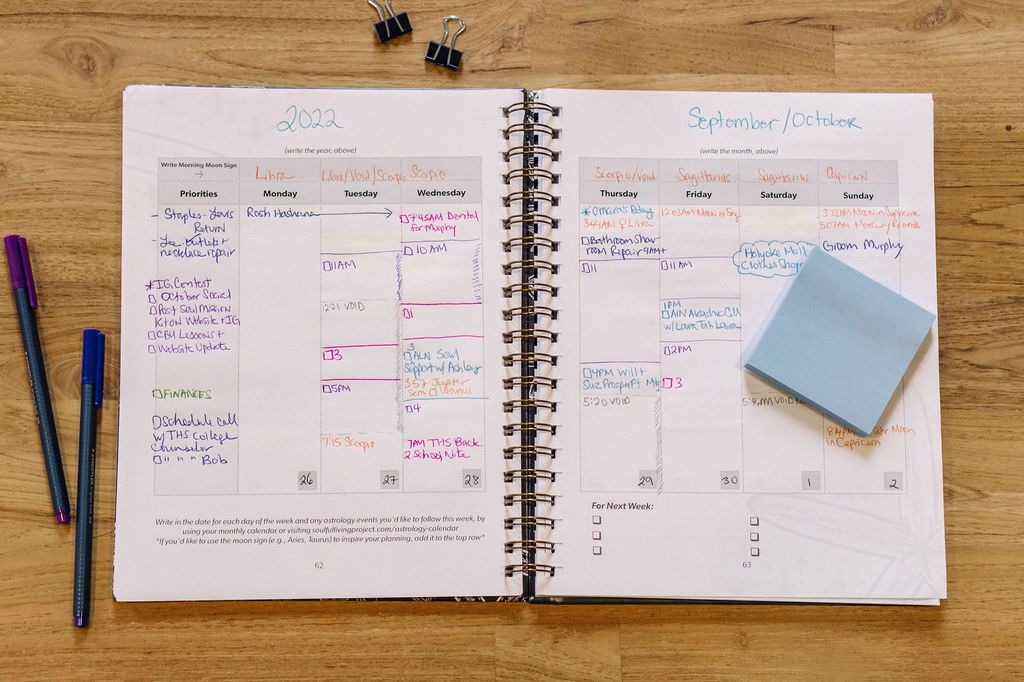 2022
(write the year, above)
Write Morning Moon Sign
Libra
Libra/Void/Scorpio
Scorpio
Priorities
Monday
Tuesday
Wednesday
- Staples - Lewis
Return
outlet +
necklace repair
*IG Contest
October Social
Post Soul Mission
on Website + IG
Lessons +
Website Update
FINANCES
Schedule call
w/ THS College
Counselor
" " " Bob
Rosh Hashana
11AM
2:21 VOID
3
5PM
7:15 Scorpio
7:45AM Dental
for Murphy
10AM
1
3
ALN Soul
Support w/ Ashley
3:57 Jupiter
Sem Uranus
4
7AM THS Back
2 School Note
26
27
28
Write in the date for each day of the week and any astrology events you'd like to follow this week, by
using your monthly calendar or visiting soulfullivingproject.com/astrology-calendar
*If you'd like to use the moon sign (e.g., Aries, Taurus) to inspire your planning, add it to the top row*
62
September/October
(write the month, above)
Scorpio/Void
Sagittarius
Sagittarius
Capricorn
Thursday
Friday
Saturday
Sunday
*Omara's Bday
3:49AM ♀ Libra
Bathroom Show
room Repair 9AM+
11
4PM Will +
Sue Prosper Pt Mtg
5:20 VOID
12:03AM Moon in Sag
11AM
1PM
AIN Akashic Call
w/ Laura
2PM
3
Holyoke Mall
Clothes Shop
5:46AM VOID
3:38AM Moon in Capricorn
5:07AM Mercury
Groom Murphy
Moon
in Capricorn
29
30
1
2
For Next Week:
63